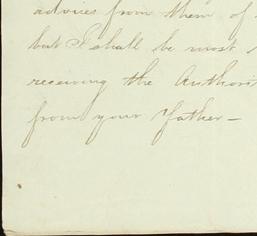 advices from them of
but I shall be most
receiving the Authori
from your Father –